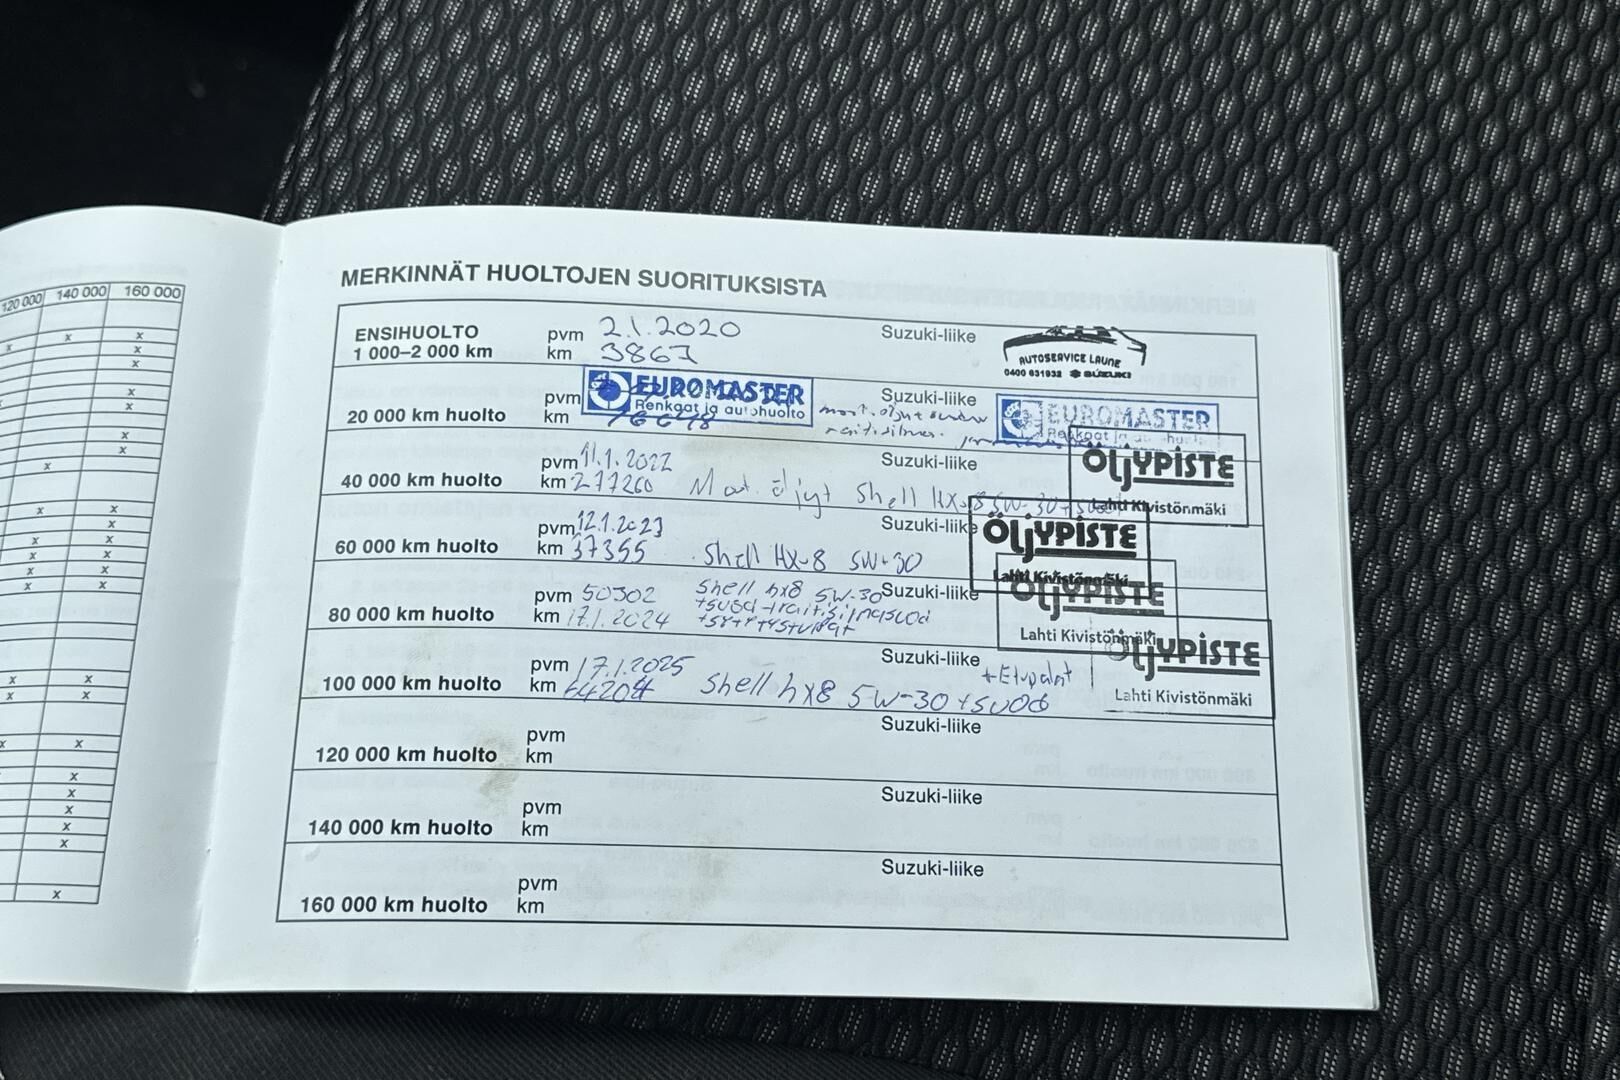 120 000 140 000 160 000
MERKINNÄT HUOLTOJEN SUORITUKSISTA
ENSIHUOLTO pvm 2.1.2020 Suzuki-liike
1 000–2 000 km km 3867
AUTOSERVICE LAUNE
0400 631932 SUZUKI
pvm EUROMASTER Suzuki-liike EUROMASTER
20 000 km huolto km Renkaat ja autohuolto
raitisilma
pvm 11.1.2022 Suzuki-liike ÖljYPİSTE
40 000 km huolto km Mot. öljyt Shell HX-8 5W-30 + suod
Lahti Kivistönmäki
pvm 12.1.2023 Suzuki-liike ÖljYPİSTE
60 000 km huolto km 37355 Shell HX-8 5W-30
Lahti Kivistönmäki
pvm 50302 Shell hx8 5W-30 Suzuki-liike ÖljYPİSTE
+suod +raitisilmasuod
80 000 km huolto km 17.1.2024
Lahti Kivistönmäki
pvm 17.1.2025 Suzuki-liike +Etupalat ÖljYPİSTE
100 000 km huolto km 64204 Shell hx8 5W-30 +suod
Lahti Kivistönmäki
pvm Suzuki-liike
120 000 km huolto km
pvm Suzuki-liike
140 000 km huolto km
pvm Suzuki-liike
160 000 km huolto km